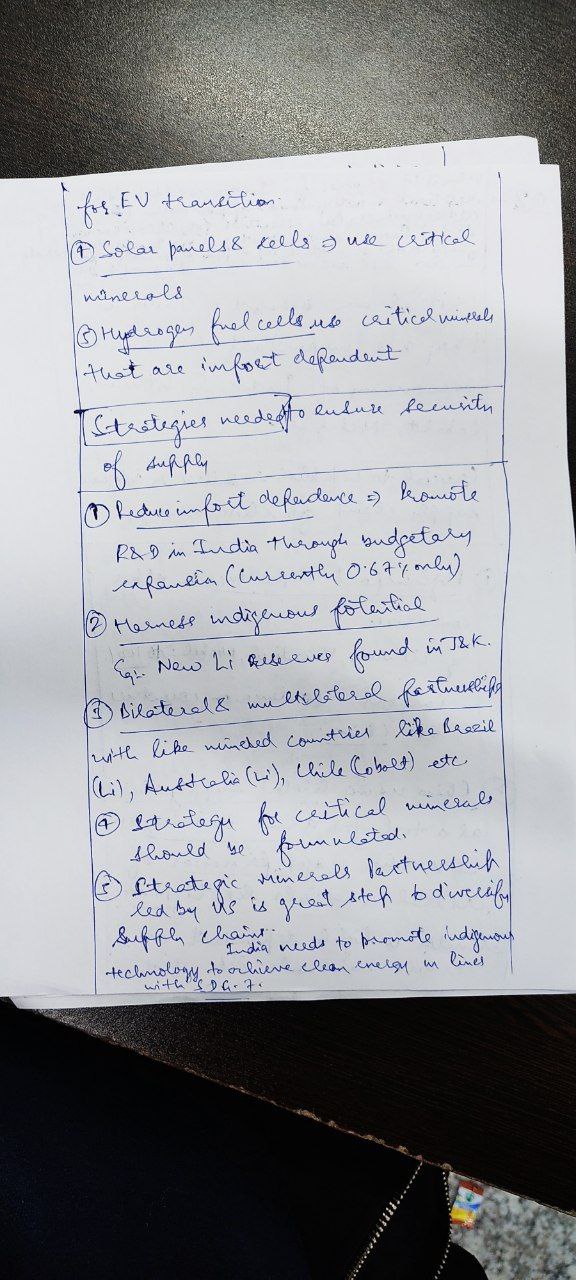 for EV transition
④ Solar panels & cells ⇒ use critical
minerals
⑤ Hydrogen fuel cells use critical minerals
that are import dependent
Strategies needed to ensure security
of supply
① Reduce import dependence ⇒ Promote
R&D in India through budgetary
expansion (Currently 0.67% only)
② Harness indigenous potential
Eg:- New Li reserves found in J&K.
③ Bilateral & multilateral partnerships
with like minded countries like Brazil
(Li), Australia (Li), Chile (Cobalt) etc
④ Strategy for critical minerals
should be formulated.
⑤ Strategic Minerals Partnership
led by US is great step to diversify
supply chains.
India needs to promote indigenous
technology to achieve clean energy in lines
with SDG-7.